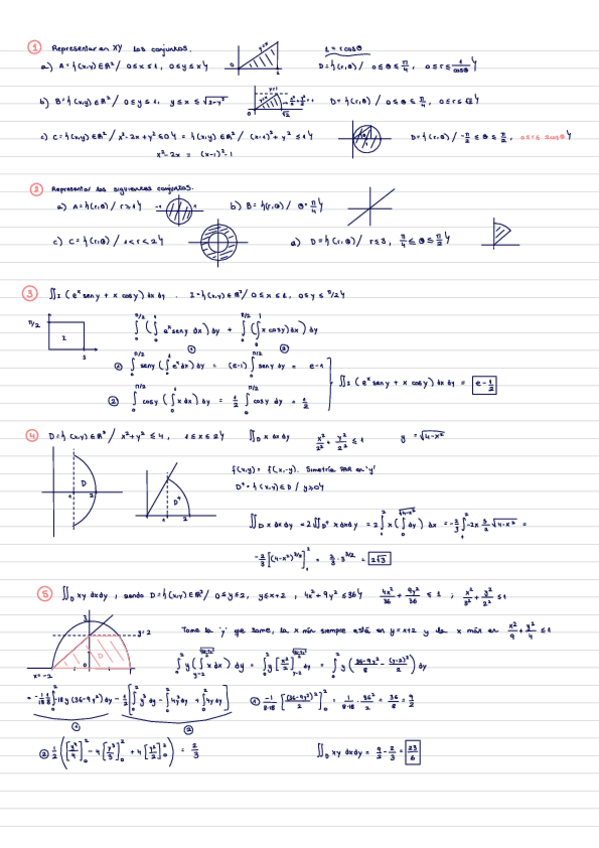 ① Representar en XY los conjuntos.
a) A = {(x,y) ∈ ℝ² / 0≤x≤1, 0≤y≤x}
D = {(r,θ) / 0≤θ≤π/4, 0≤r≤1/cosθ}
b) B = {(x,y) ∈ ℝ² / 0≤y≤1, y≤x≤√(2-y²)}
D = {(r,θ) / 0≤θ≤π/4, 0≤r≤√2}
c) C = {(x,y) ∈ ℝ² / x²-2x+y²≤0} = {(x,y) ∈ ℝ² / (x-1)²+y²≤1}
D = {(r,θ) / -π/2≤θ≤π/2,
x²-2x = (x-1)²-1
② Representar los siguientes conjuntos.
a) A = {(r,θ) / r≥1}
b) B = {(r,θ) / θ = π/4}
c) C = {(r,θ) / 1<r<2}
d) D = {(r,θ) / r≤3, π/4≤θ≤π/2}
③ ∬I (eˣ sen y + x cos y) dx dy . I = {(x,y) ∈ ℝ² / 0≤x≤1, 0≤y≤π/2}
π/2 I 1
∫₀^π/2 (∫₀¹ eˣ sen y dx) dy + ∫₀^π/2 (∫₀¹ x cos y dx) dy
① ②
① ∫₀^π/2 sen y (∫₀¹ eˣ dx) dy = (e-1) ∫₀^π/2 sen y dy = e-1
② ∫₀^π/2 cos y (∫₀¹ x dx) dy = 1/2 ∫₀^π/2 cos y dy = 1/2
∬I (eˣ sen y + x cos y) dx dy = e-1/2
④ D = {(x,y) ∈ ℝ² / x²+y²≤4, 1≤x≤2} ∬D x dx dy x²/2² + y²/2² ≤ 1 y = √(4-x²)
D 1 2
D⁺ 1 2
f(x,y) = f(x,-y). Simetría PAR en "y"
D⁺ = {(x,y) ∈ D / y≥0}
∬D x dx dy = 2∬D⁺ x dx dy = 2∫₁² x (∫₀^√(4-x²) dy) dx =
-2/3 [(4-x²)^3/2]₁² = 2/3 · 3^3/2 = 2√3
⑤ ∬D xy dx dy, siendo D = {(x,y) ∈ ℝ² / 0≤y≤2, y≤x+2, 4x²+9y²≤36} 4x²/36 + 9y²/36 ≤ 1 ; x²/3² + y²/2² ≤ 1
y=2
D
x=-2
Tome la 'y' que tome, la x mín siempre está en y=x+2 y la x máx en x²/9 + y²/4 ≤ 1
= ∫₀² y [x²/2] dy = ∫₀² y ((36-9y²)/8 - (y-2)²/2) dy
= -1/18 · 1/8 ∫₀² -18y (36-9y²) dy - 1/2 [∫₀² y³ dy - ∫₀² 4y² dy + ∫₀² 4y dy]
① ②
① -1/8·18 [(36-9y²)²/2]₀² = 1/8·18 · 36²/2 = 36/8 = 9/2
② 1/2 ([y⁴/4]₀² - 4[y³/3]₀² + 4[y²/2]₀²) = 2/3
∬D xy dx dy = 9/2 - 2/3 = 23/6